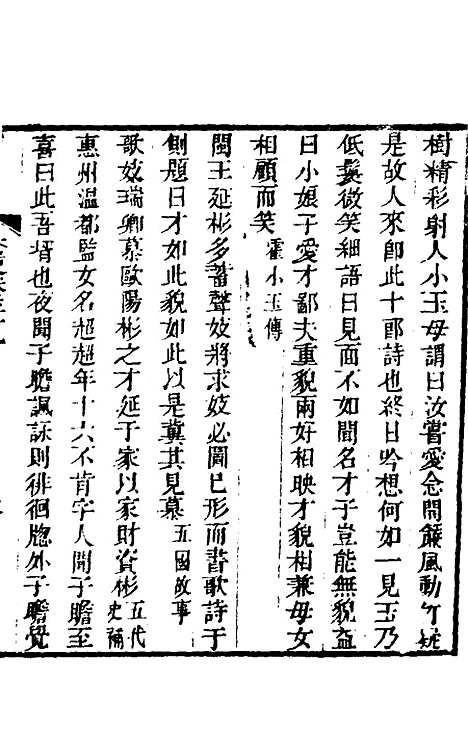 樹精彩射人小玉母謂曰汝嘗愛念開簾風動竹疑
是故人來卽此十郎詩也終日吟想何如一見玉乃
低鬟微笑細語曰見面不如聞名才子豈能無貌益
曰小娘子愛才鄙夫重貌兩好相映才貌相兼母女
相顧而笑霍小玉傳
閩王延彬多蓄聲妓將求妓必圖已形而書歌詩于
側題曰才如此貌如此以是冀其見慕五國故事
歌妓瑞卿慕歐陽彬之才延于家以家財資彬五代史補
惠州溫都監女名超超年十六不肯字人聞子瞻至
喜曰此吾壻也夜聞子瞻諷詠則徘徊牕外子瞻覺